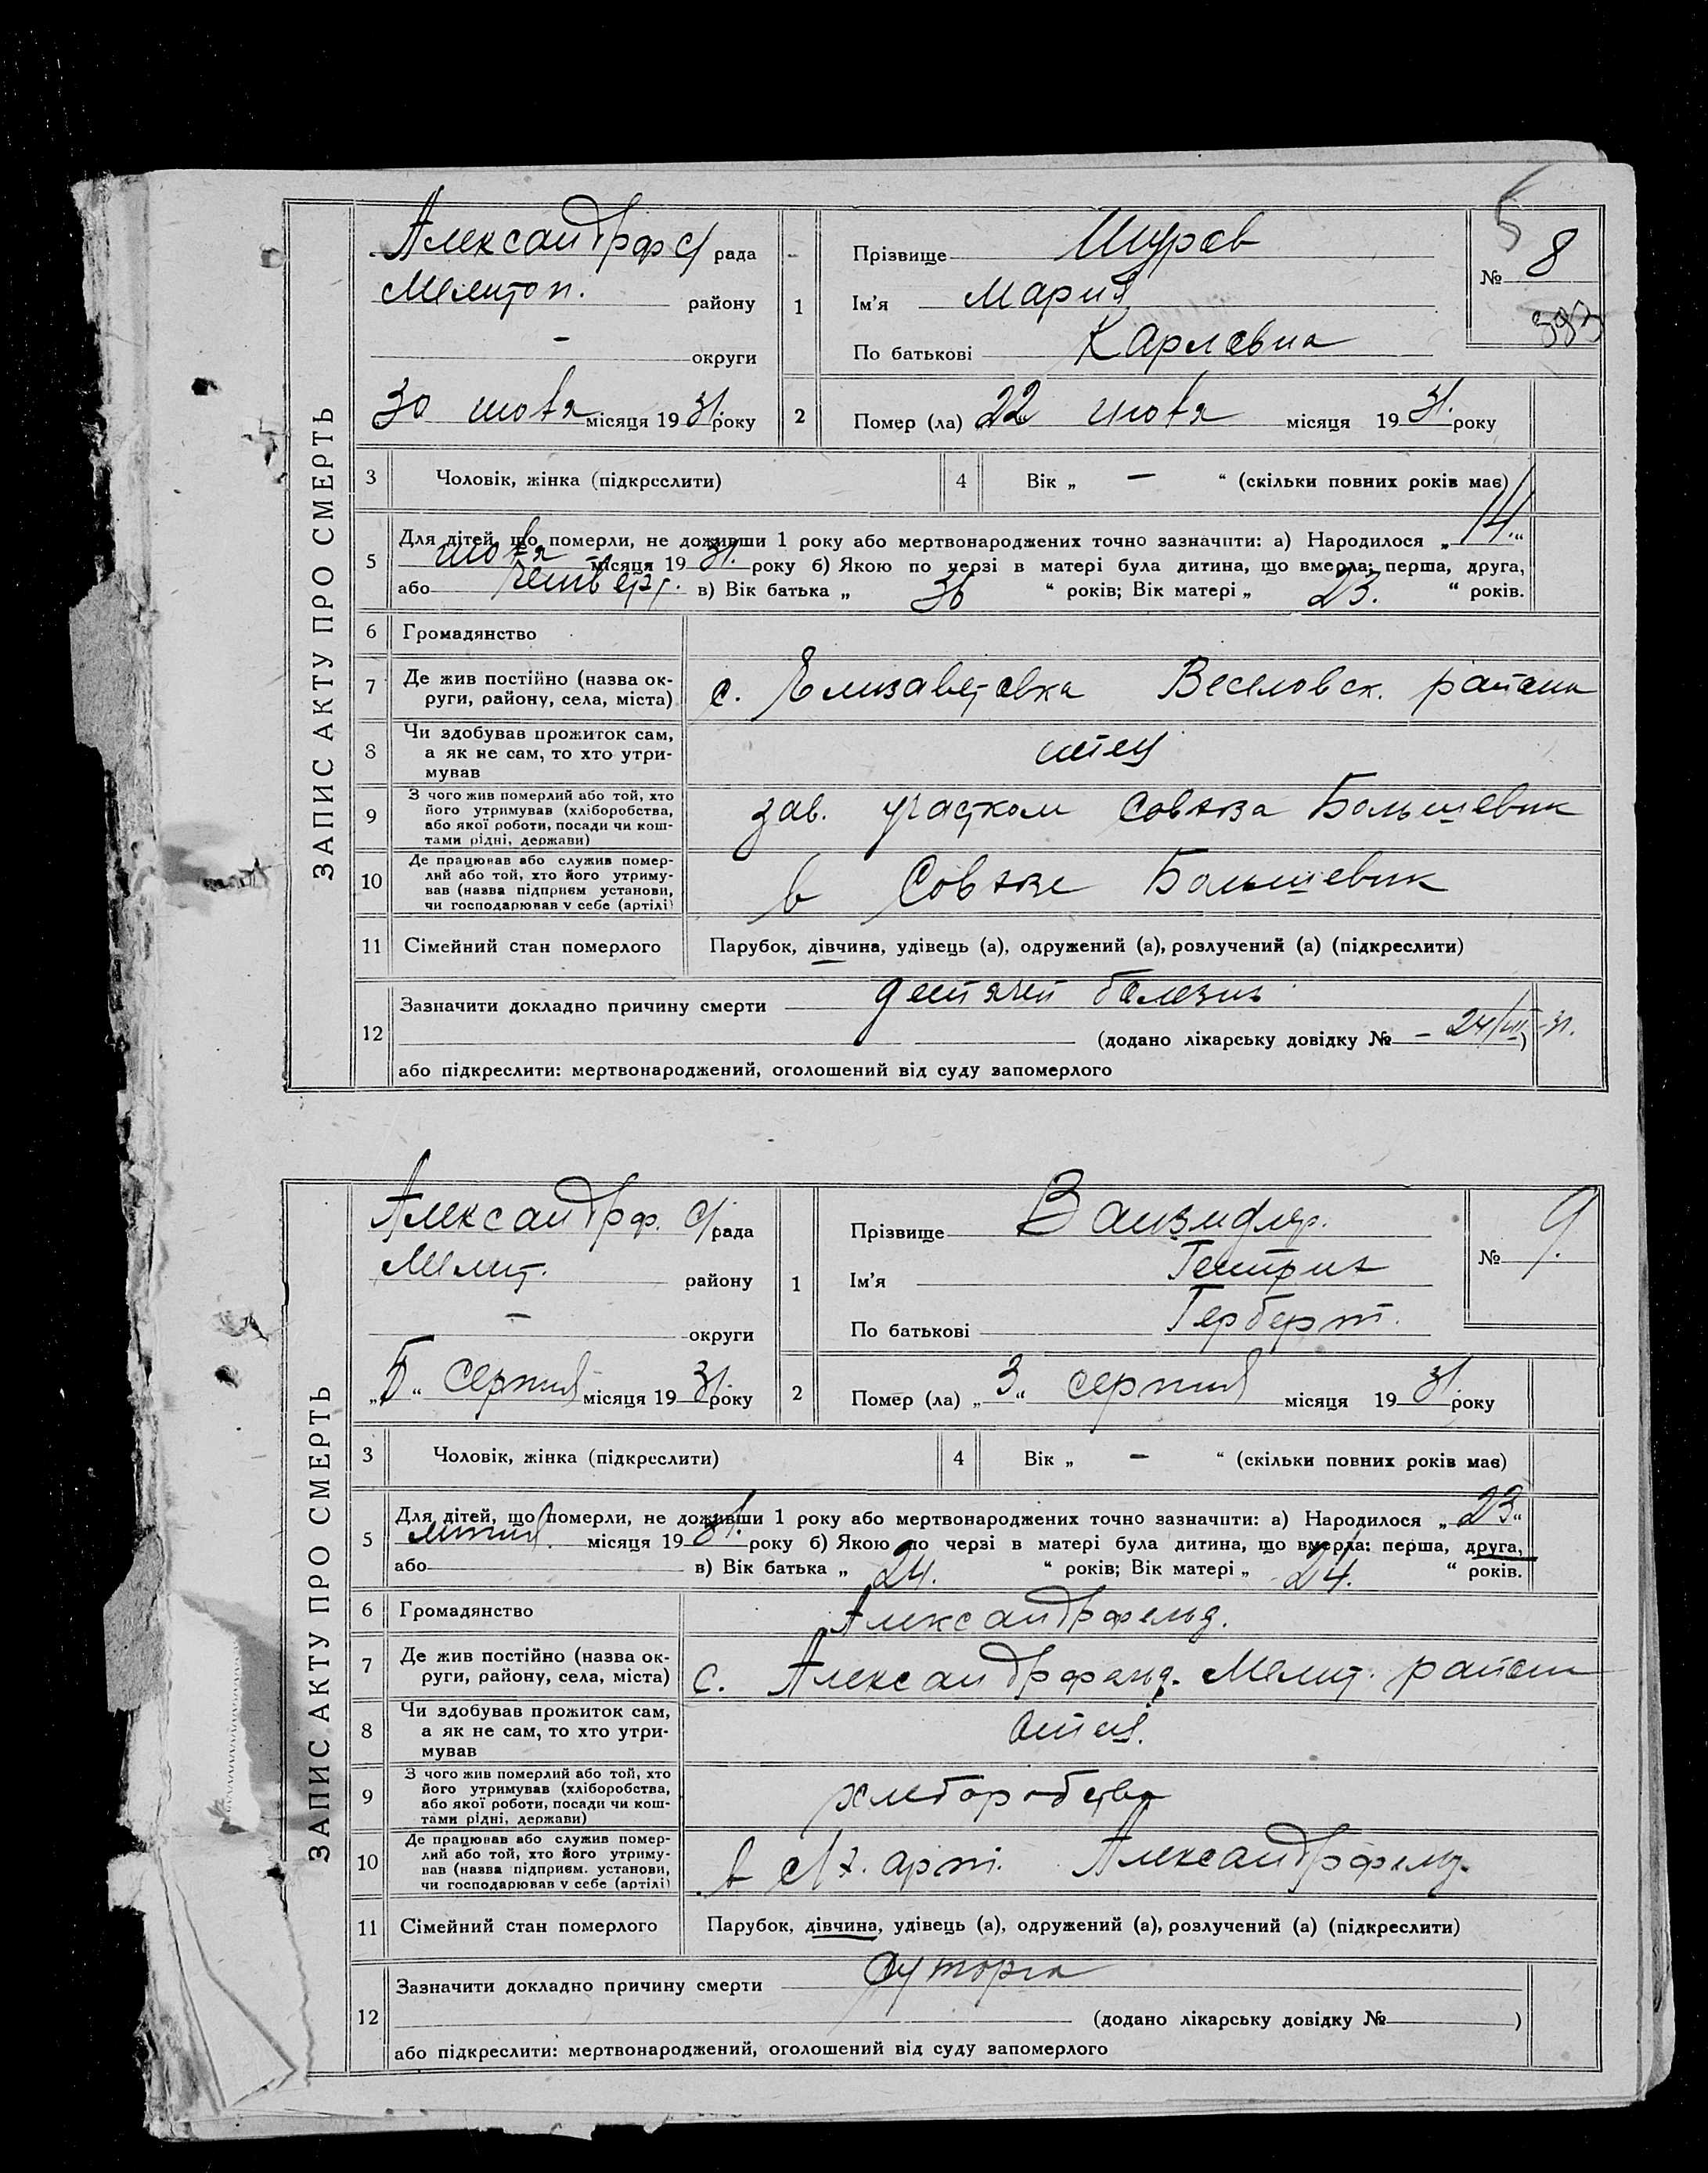 ЗАПИС АКТУ ПРО СМЕРТЬ
Александрф с/рада
Мелитоп. району
– округи
30 июля місяця 1931. року
1
Прізвище
Імʼя Мария
По батькові Карловна
№ 8
2
Помер (ла) 22 июля місяця 1931. року
3 Чоловік, жінка (підкреслити)
4 Вік „ – “ (скільки повних років має)
5 Для дітей, що померли, не доживши 1 року або мертвонароджених точно зазначити: а) Народилося „14.“
июля місяця 1931. року б) Якою по черзі в матері була дитина, що вмерла: перша, друга,
або четверт. в) Вік батька „ 36 “ років; Вік матері „ 23. “ років.
6 Громадянство
7 Де жив постійно (назва ок-
руги, району, села, міста)
с. Елизаветовка Веселовск. района
8 Чи здобував прожиток сам,
а як не сам, то хто утри-
мував
отец
9 З чого жив померлий або той, хто
його утримував (хліборобства,
або якої роботи, посади чи кош-
тами рідні, держави)
зав. участком Совхоза Большевик
10 Де працював або служив помер-
лий або той, хто його утриму-
вав (назва підприєм установи,
чи господарював у себе (артілі)
в Совхозе Большевик
11 Сімейний стан померлого
Парубок, дівчина, удівець (а), одружений (а), розлучений (а) (підкреслити)
12 Зазначити докладно причину смерти детячей болезнь
(додано лікарську довідку № – 24/VII–31.)
або підкреслити: мертвонароджений, оголошений від суду запомерлого
ЗАПИС АКТУ ПРО СМЕРТЬ
Александрф. с/рада
Мелит. району
– округи
„5“ серпня місяця 1931. року
1
Прізвище
Імʼя Гентрих
По батькові Герберт.
№ 9.
2
Помер (ла) „3“ серпня місяця 1931. року
3 Чоловік, жінка (підкреслити)
4 Вік „ – “ (скільки повних років має)
5 Для дітей, що померли, не доживши 1 року або мертвонароджених точно зазначити: а) Народилося „23“
липня. місяця 1931. року б) Якою по черзі в матері була дитина, що вмерла: перша, друга,
або в) Вік батька „ 24. “ років; Вік матері „ 24. “ років.
6 Громадянство
Александрфельд.
7 Де жив постійно (назва ок-
руги, району, села, міста)
с. Александрфельд. Мелит. район
8 Чи здобував прожиток сам,
а як не сам, то хто утри-
мував
отец.
9 З чого жив померлий або той, хто
його утримував (хліборобства,
або якої роботи, посади чи кош-
тами рідні, держави)
хлеборобства
10 Де працював або служив помер-
лий або той, хто його утриму-
вав (назва підприєм. установи,
чи господарював у себе (артілі)
в с/х. арт. Александрфельд.
11 Сімейний стан померлого
Парубок, дівчина, удівець (а), одружений (а), розлучений (а) (підкреслити)
12 Зазначити докладно причину смерти
(додано лікарську довідку № )
або підкреслити: мертвонароджений, оголошений від суду запомерлого